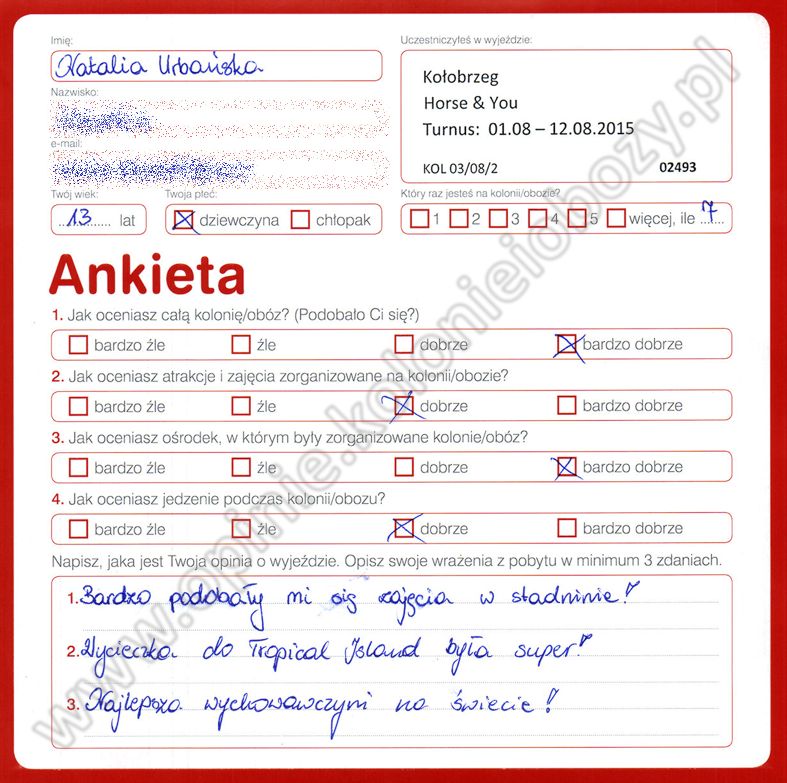 Imię:
Natalia Urbańska
Uczestniczyłeś w wyjeździe:
Kołobrzeg
Horse & You
Turnus: 01.08 – 12.08.2015
KOL 03/08/2 02493
Nazwisko:
e-mail:
Twój wiek:
13 lat
Twoja płeć:
dziewczyna chłopak
Który raz jesteś na kolonii/obozie?
1 2 3 4 5 więcej, ile 7
Ankieta
1. Jak oceniasz całą kolonię/obóz? (Podobało Ci się?)
bardzo źle źle dobrze bardzo dobrze
2. Jak oceniasz atrakcje i zajęcia zorganizowane na kolonii/obozie?
bardzo źle źle dobrze bardzo dobrze
3. Jak oceniasz ośrodek, w którym były zorganizowane kolonie/obóz?
bardzo źle źle dobrze bardzo dobrze
4. Jak oceniasz jedzenie podczas kolonii/obozu?
bardzo źle źle dobrze bardzo dobrze
Napisz, jaka jest Twoja opinia o wyjeździe. Opisz swoje wrażenia z pobytu w minimum 3 zdaniach.
1. Bardzo podobały mi się zajęcia w stadninie!
2. Wycieczka do Tropical Island była super!
3. Najlepsza wychowawczyni na świecie!
www.opinie.kolonieiobozy.pl